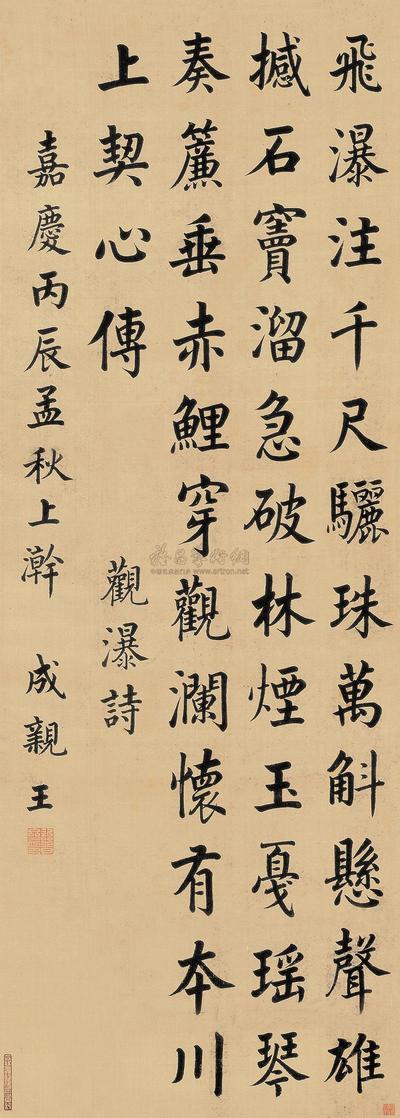 飛瀑注千尺驪珠萬斛懸聲雄
撼石竇溜急破林煙玉戛瑶琴
奏簾垂赤鯉穿觀瀾懷有本川
上契心傳
觀瀑詩
嘉慶丙辰孟秋上澣 成親王